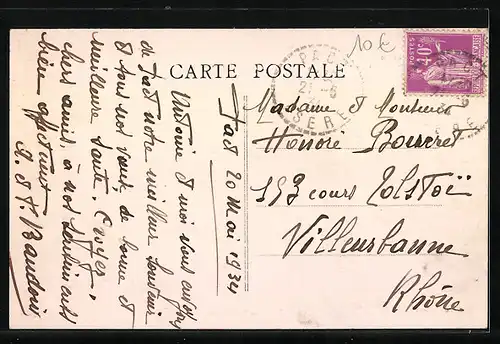 CARTE POSTALE
10 €
POSTES
40c
ISERE
Jad 20 Mai 1934
Antoine et moi vous envoyons
de Jad notre meilleur souvenir
et tous nos vœux de bonne et
meilleure santé. Croyez,
chers amis, à nos sentiments
bien affectueux
A. et J. Baudoin
Madame et Monsieur
Honoré Bouveret
193 cours Tolstoï
Villeurbanne
Rhône